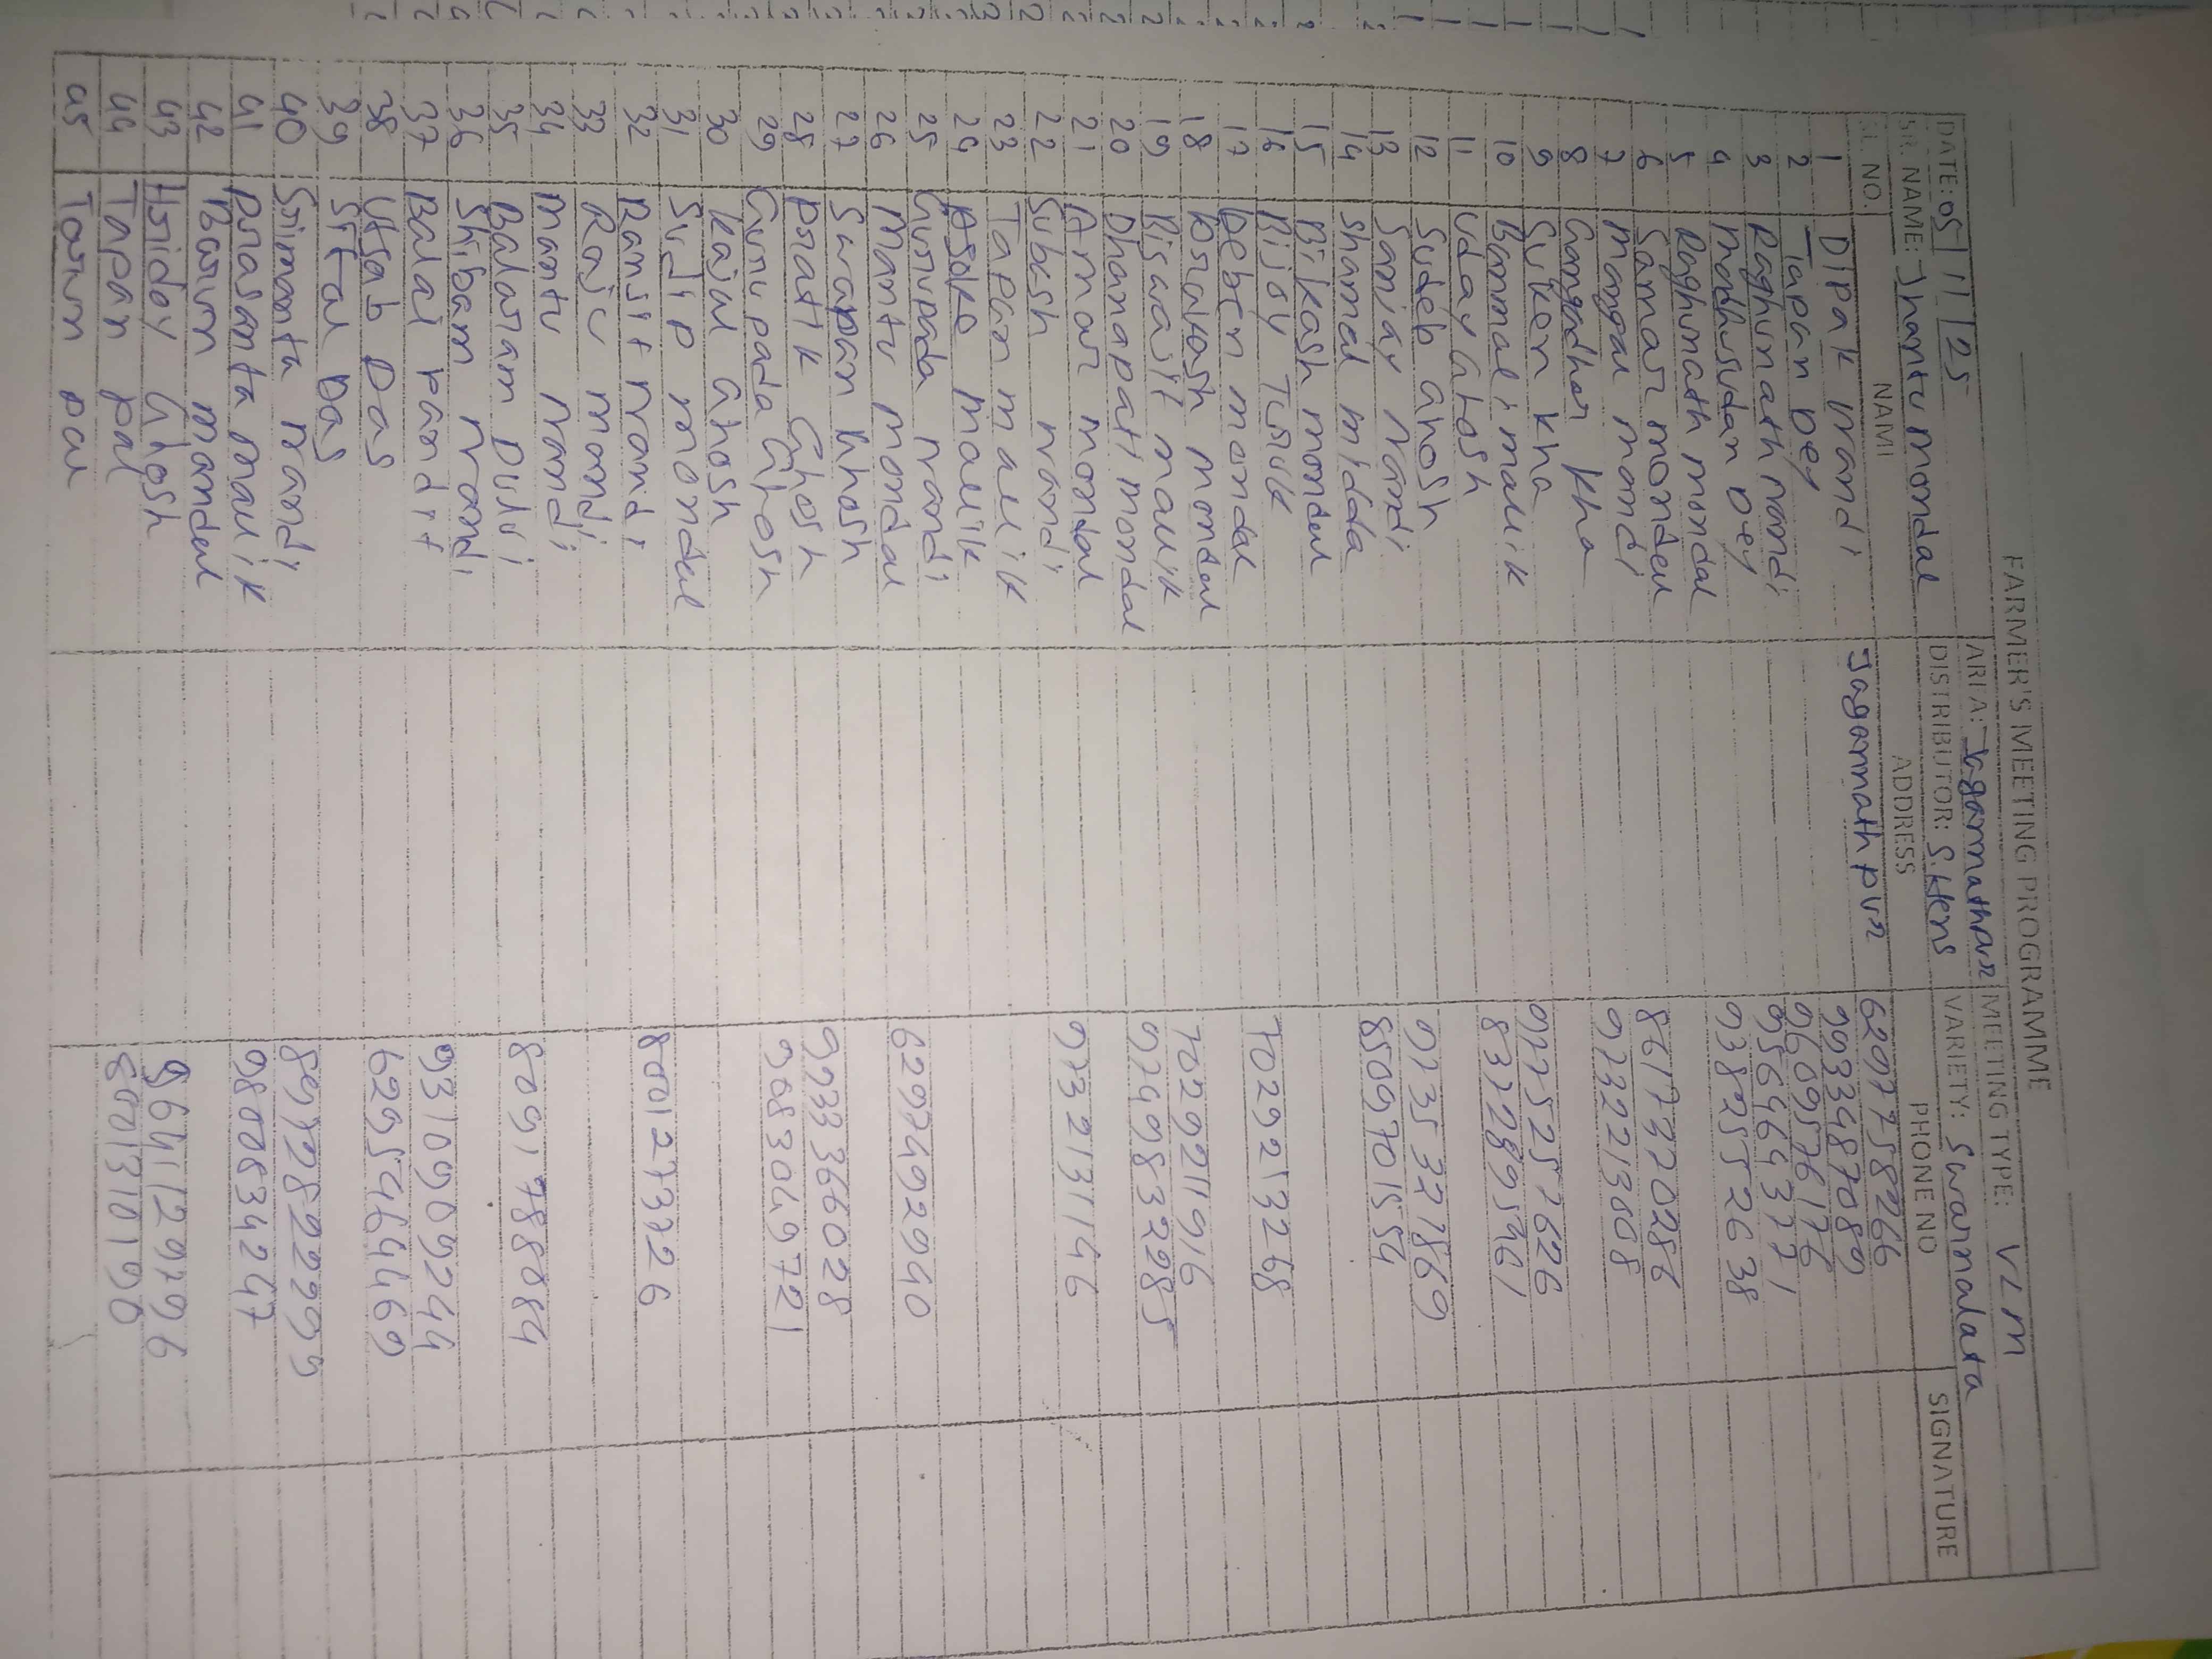 FARMER'S MEETING PROGRAMME
DATE: 05/11/25 AREA: Jagannathpur MEETING TYPE: VLM
SR. NAME: Jhantu mondal DISTRIBUTOR: S.Hens VARIETY: Swarnalata
SL. NO. NAME ADDRESS PHONE NO SIGNATURE
1 Dipak nandi Jagannathpur 6297758266
2 Tapan Dey 9933487089
3 Raghunath nandi 9609576176
4 Madhusudan Dey 9564643771
5 Raghunath mondal 9382552638
6 Samar mondal
7 Mangal nandi 8617370286
8 Gangadhar kha 9732213808
9 Suken kha
10 Banmali malik 9775257626
11 Uday Ghosh 8372895961
12 Sudeb Ghosh
13 Sanjay Nandi 9735321869
14 Shamal midda 8509701554
15 Bikash mondal
16 Bijoy Turuk
17 Deben mondal 7029213268
18 Prakash mondal
19 Biswajit malik 7029211916
20 Dhanapati mondal 9749832985
21 Amar mondal
22 Subesh nandi 9732131146
23 Tapan malik
24 Asoke malik
25 Gurupada nandi
26 Mantu mondal 6297492940
27 Swapan Ghosh
28 Pratik Ghosh 9933366028
29 Gurupada Ghosh 9083049721
30 Kajal Ghosh
31 Sudip mondal
32 Ranjit nandi 8001273726
33 Raju nandi
34 Mantu nandi
35 Balaram Dului 8091788084
36 Shibam nandi
37 Balai pandit 9310909244
38 Utsab Das 6295464469
39 Sital Das
40 Srimanta nandi 8972822299
41 Prasanta malik 9800834247
42 Barun mondal
43 Hriday Ghosh 9641129796
44 Tapan pal 8001310190
45 Tarun pal